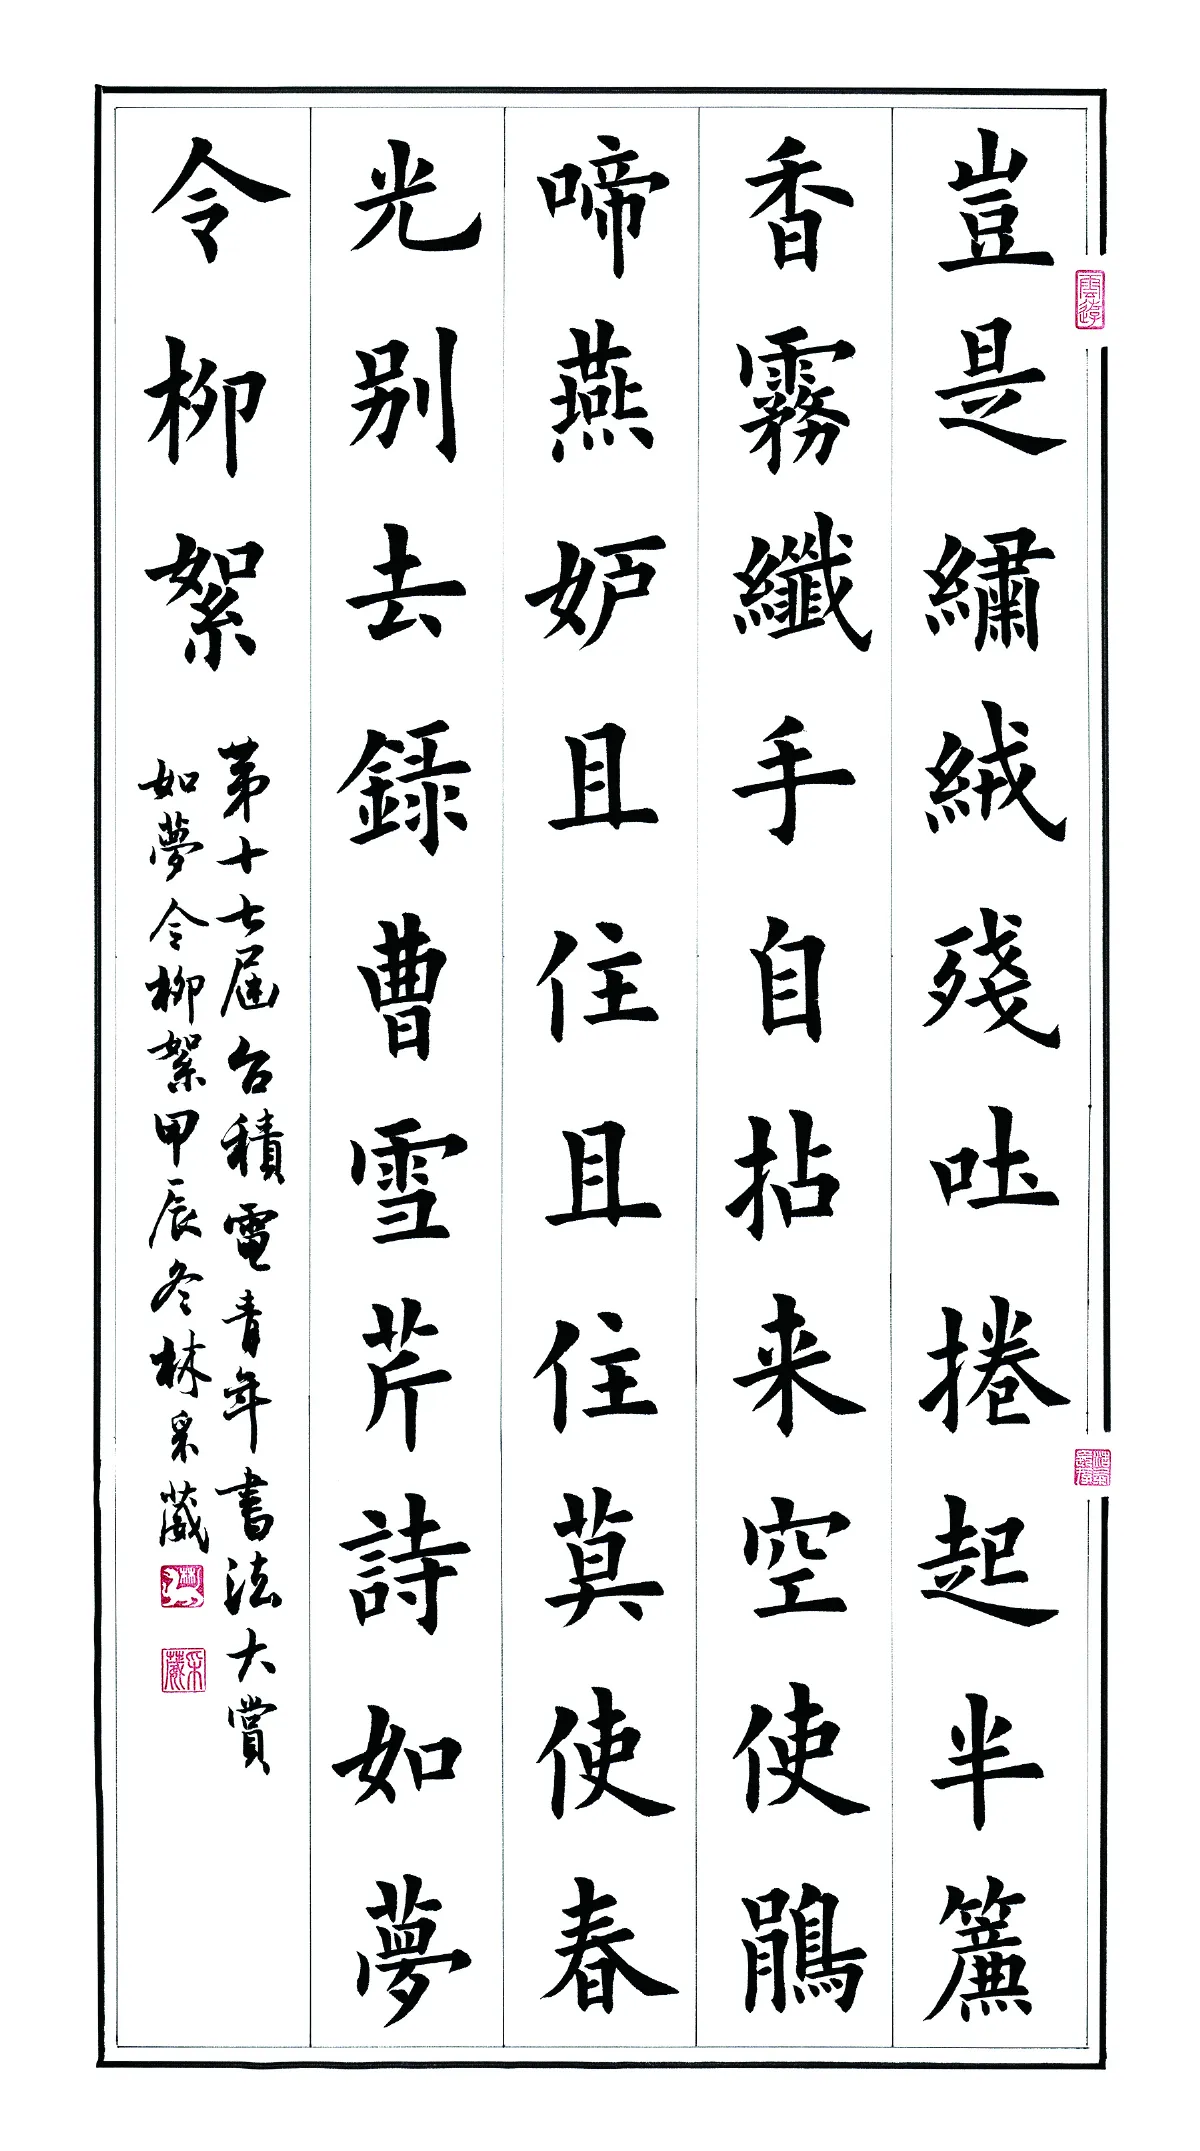 豈是繡絨殘吐捲起半簾
香霧纖手自拈来空使鵑
啼燕妒且住且住莫使春
光别去錄曹雪芹詩如夢
令柳絮
第十七屆台積電青年書法大賞
如夢令柳絮甲辰冬林采葳
雲遊
采葳